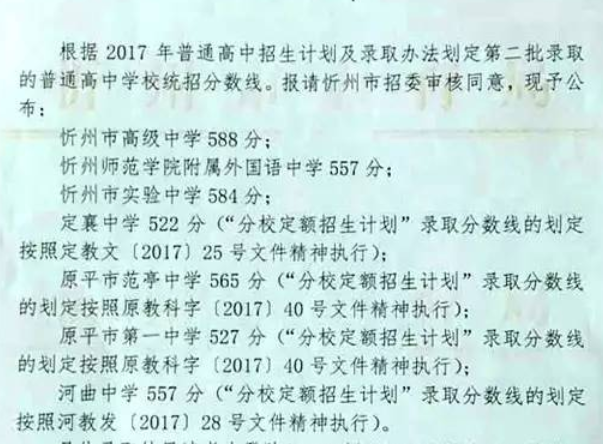 根据 2017 年普通高中招生计划及录取办法划定第二批录取
的普通高中学校统招分数线。报请忻州市招委审核同意，现予公
布：
忻州市高级中学 588 分；
忻州师范学院附属外国语中学 557 分；
忻州市实验中学 584 分；
定襄中学 522 分（“分校定额招生计划”录取分数线的划定
按照定教文〔2017〕25 号文件精神执行）；
原平市范亭中学 565 分（“分校定额招生计划”录取分数线
的划定按照原教科字〔2017〕40 号文件精神执行）；
原平市第一中学 527 分（“分校定额招生计划”录取分数线
的划定按照原教科字〔2017〕40 号文件精神执行）；
河曲中学 557 分（“分校定额招生计划”录取分数线的划定
按照河教发〔2017〕28 号文件精神执行）。